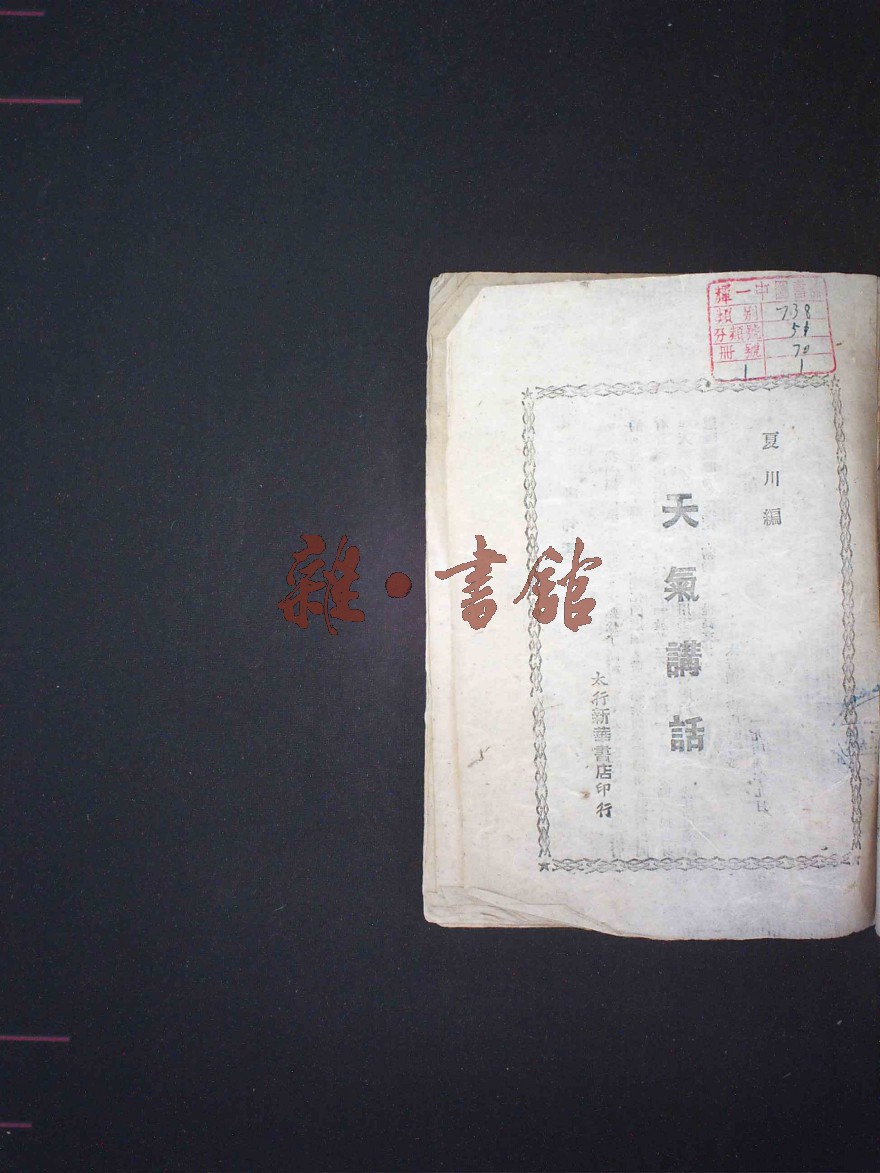 夏川編
天氣講話
太行新華書店印行
輝一中圖書館
別 738
分類號 51
冊號 70
1 1
雜·書館